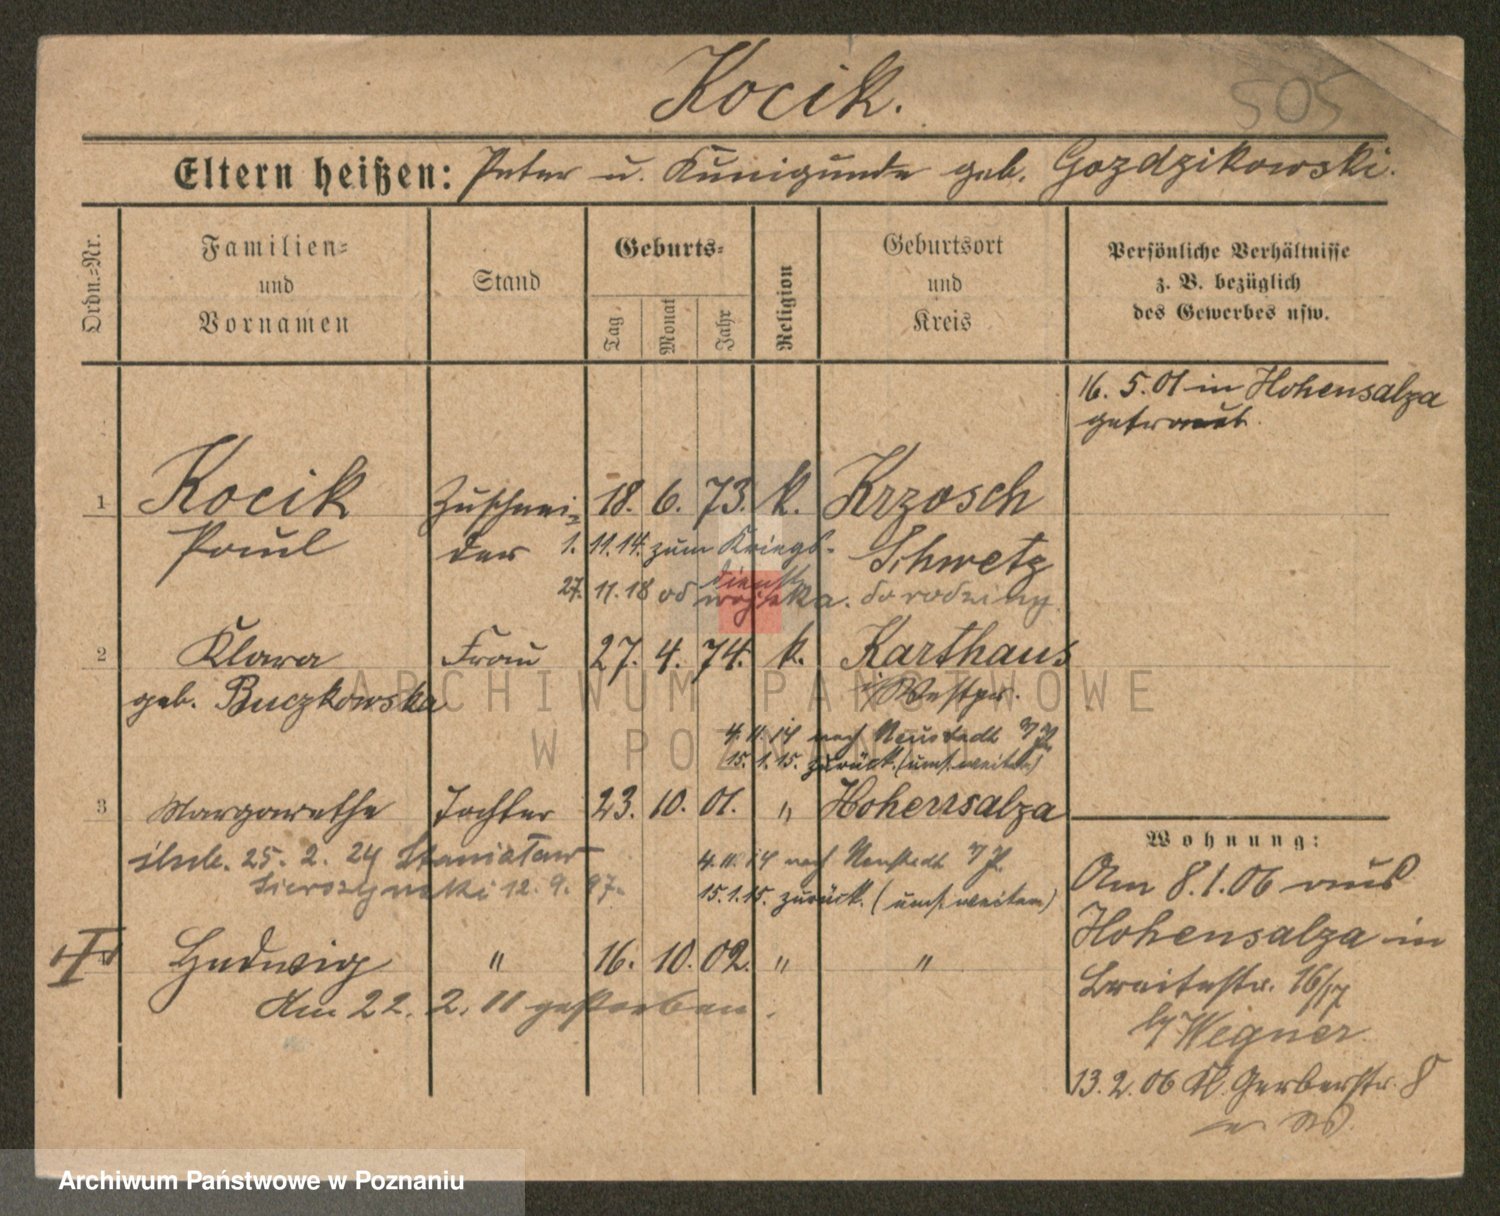 Kocik.
505
Eltern heißen: Peter u. Kunigunde geb. Gozdzikowski.
Ordn.=Nr.
Familien=
und
Vornamen
Stand
Geburts=
Tag
Monat
Jahr
Religion
Geburtsort
und
Kreis
Persönliche Verhältnisse
z. B. bezüglich
des Gewerbes usw.
16. 5. 01 in Hohensalza
getraut.
1 Kocik Zuschnei= 18. 6. 73. k. Krzosch
Paul der 1. 11. 14. zum Kriegs- Schwetz
dienst
27. 11. 18 od wojska. do rodziny
2 Klara Frau 27. 4. 74. k. Karthaus
geb. Buczkowska i/Westpr.
4. 11. 14 nach Neustadt
15. 1. 15. zurück.
3 Margarethe Tochter 23. 10. 01. " Hohensalza
ślub. 25. 2. 24 Stanisław
12. 9. 97.
4. 11. 14 nach Neustadt
15. 1. 15. zurück.
Hedwig " 16. 10. 02. " "
Am 22. 2. 11 gestorben.
Wohnung:
Am 8. 1. 06 aus
Hohensalza in
Breitestr. 16/17
b/Wegner
13. 2. 06 Kl. Gerberstr. 8
ARCHIWUM PAŃSTWOWE
W POZNANIU
Archiwum Państwowe w Poznaniu